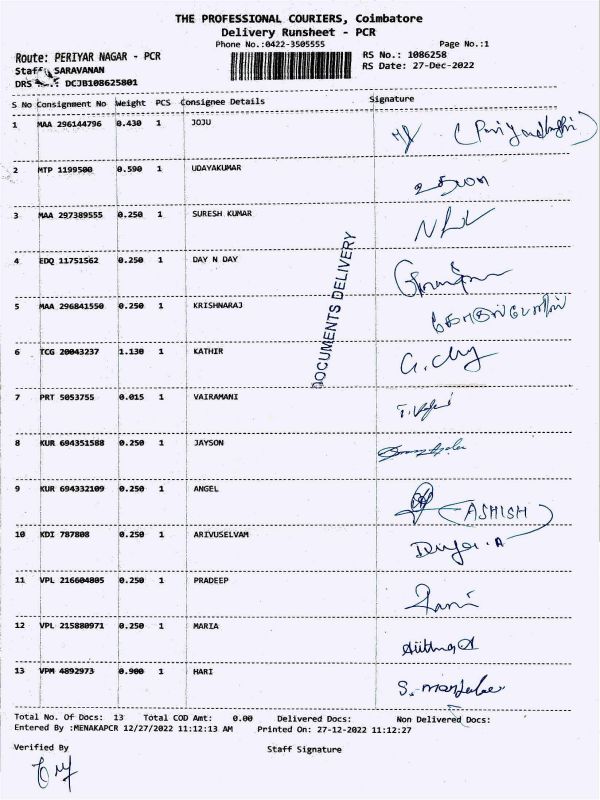 THE PROFESSIONAL COURIERS, Coimbatore
Delivery Runsheet - PCR
Phone No.:0422-3505555
Page No.:1
Route: PERIYAR NAGAR - PCR
RS No.: 1086258
Staff SARAVANAN
RS Date: 27-Dec-2022
DRS DCJB108625801
S No Consignment No Weight PCS Consignee Details Signature
1 MAA 296144796 0.430 1 JOJU
2 MTP 1199500 0.590 1 UDAYAKUMAR
3 MAA 297389555 0.250 1 SURESH KUMAR
4 EDQ 11751562 0.250 1 DAY N DAY
5 MAA 296841550 0.250 1 KRISHNARAJ
6 TCG 20043237 1.130 1 KATHIR
7 PRT 5053755 0.015 1 VAIRAMANI
8 KUR 694351588 0.250 1 JAYSON
9 KUR 694332109 0.250 1 ANGEL
(ASHISH)
10 KDI 787808 0.250 1 ARIVUSELVAM
11 VPL 216604805 0.250 1 PRADEEP
12 VPL 215880971 0.250 1 MARIA
13 VPM 4892973 0.900 1 HARI
DOCUMENTS DELIVERY
Total No. Of Docs: 13 Total COD Amt: 0.00 Delivered Docs: Non Delivered Docs:
Entered By :MENAKAPCR 12/27/2022 11:12:13 AM Printed On: 27-12-2022 11:12:27
Verified By
Staff Signature